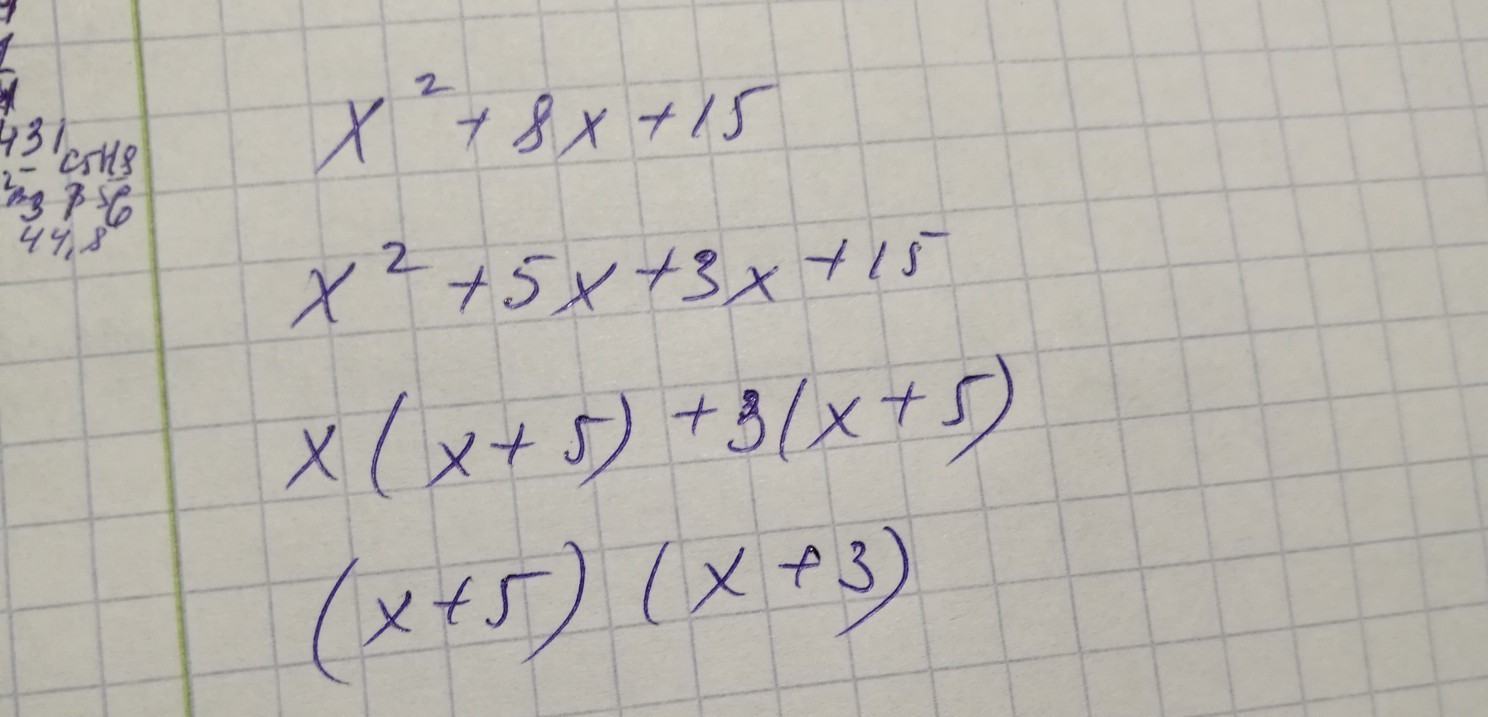 431
C5H8
44,8
x² + 8x + 15
x² + 5x + 3x + 15
x(x + 5) + 3(x + 5)
(x + 5) (x + 3)